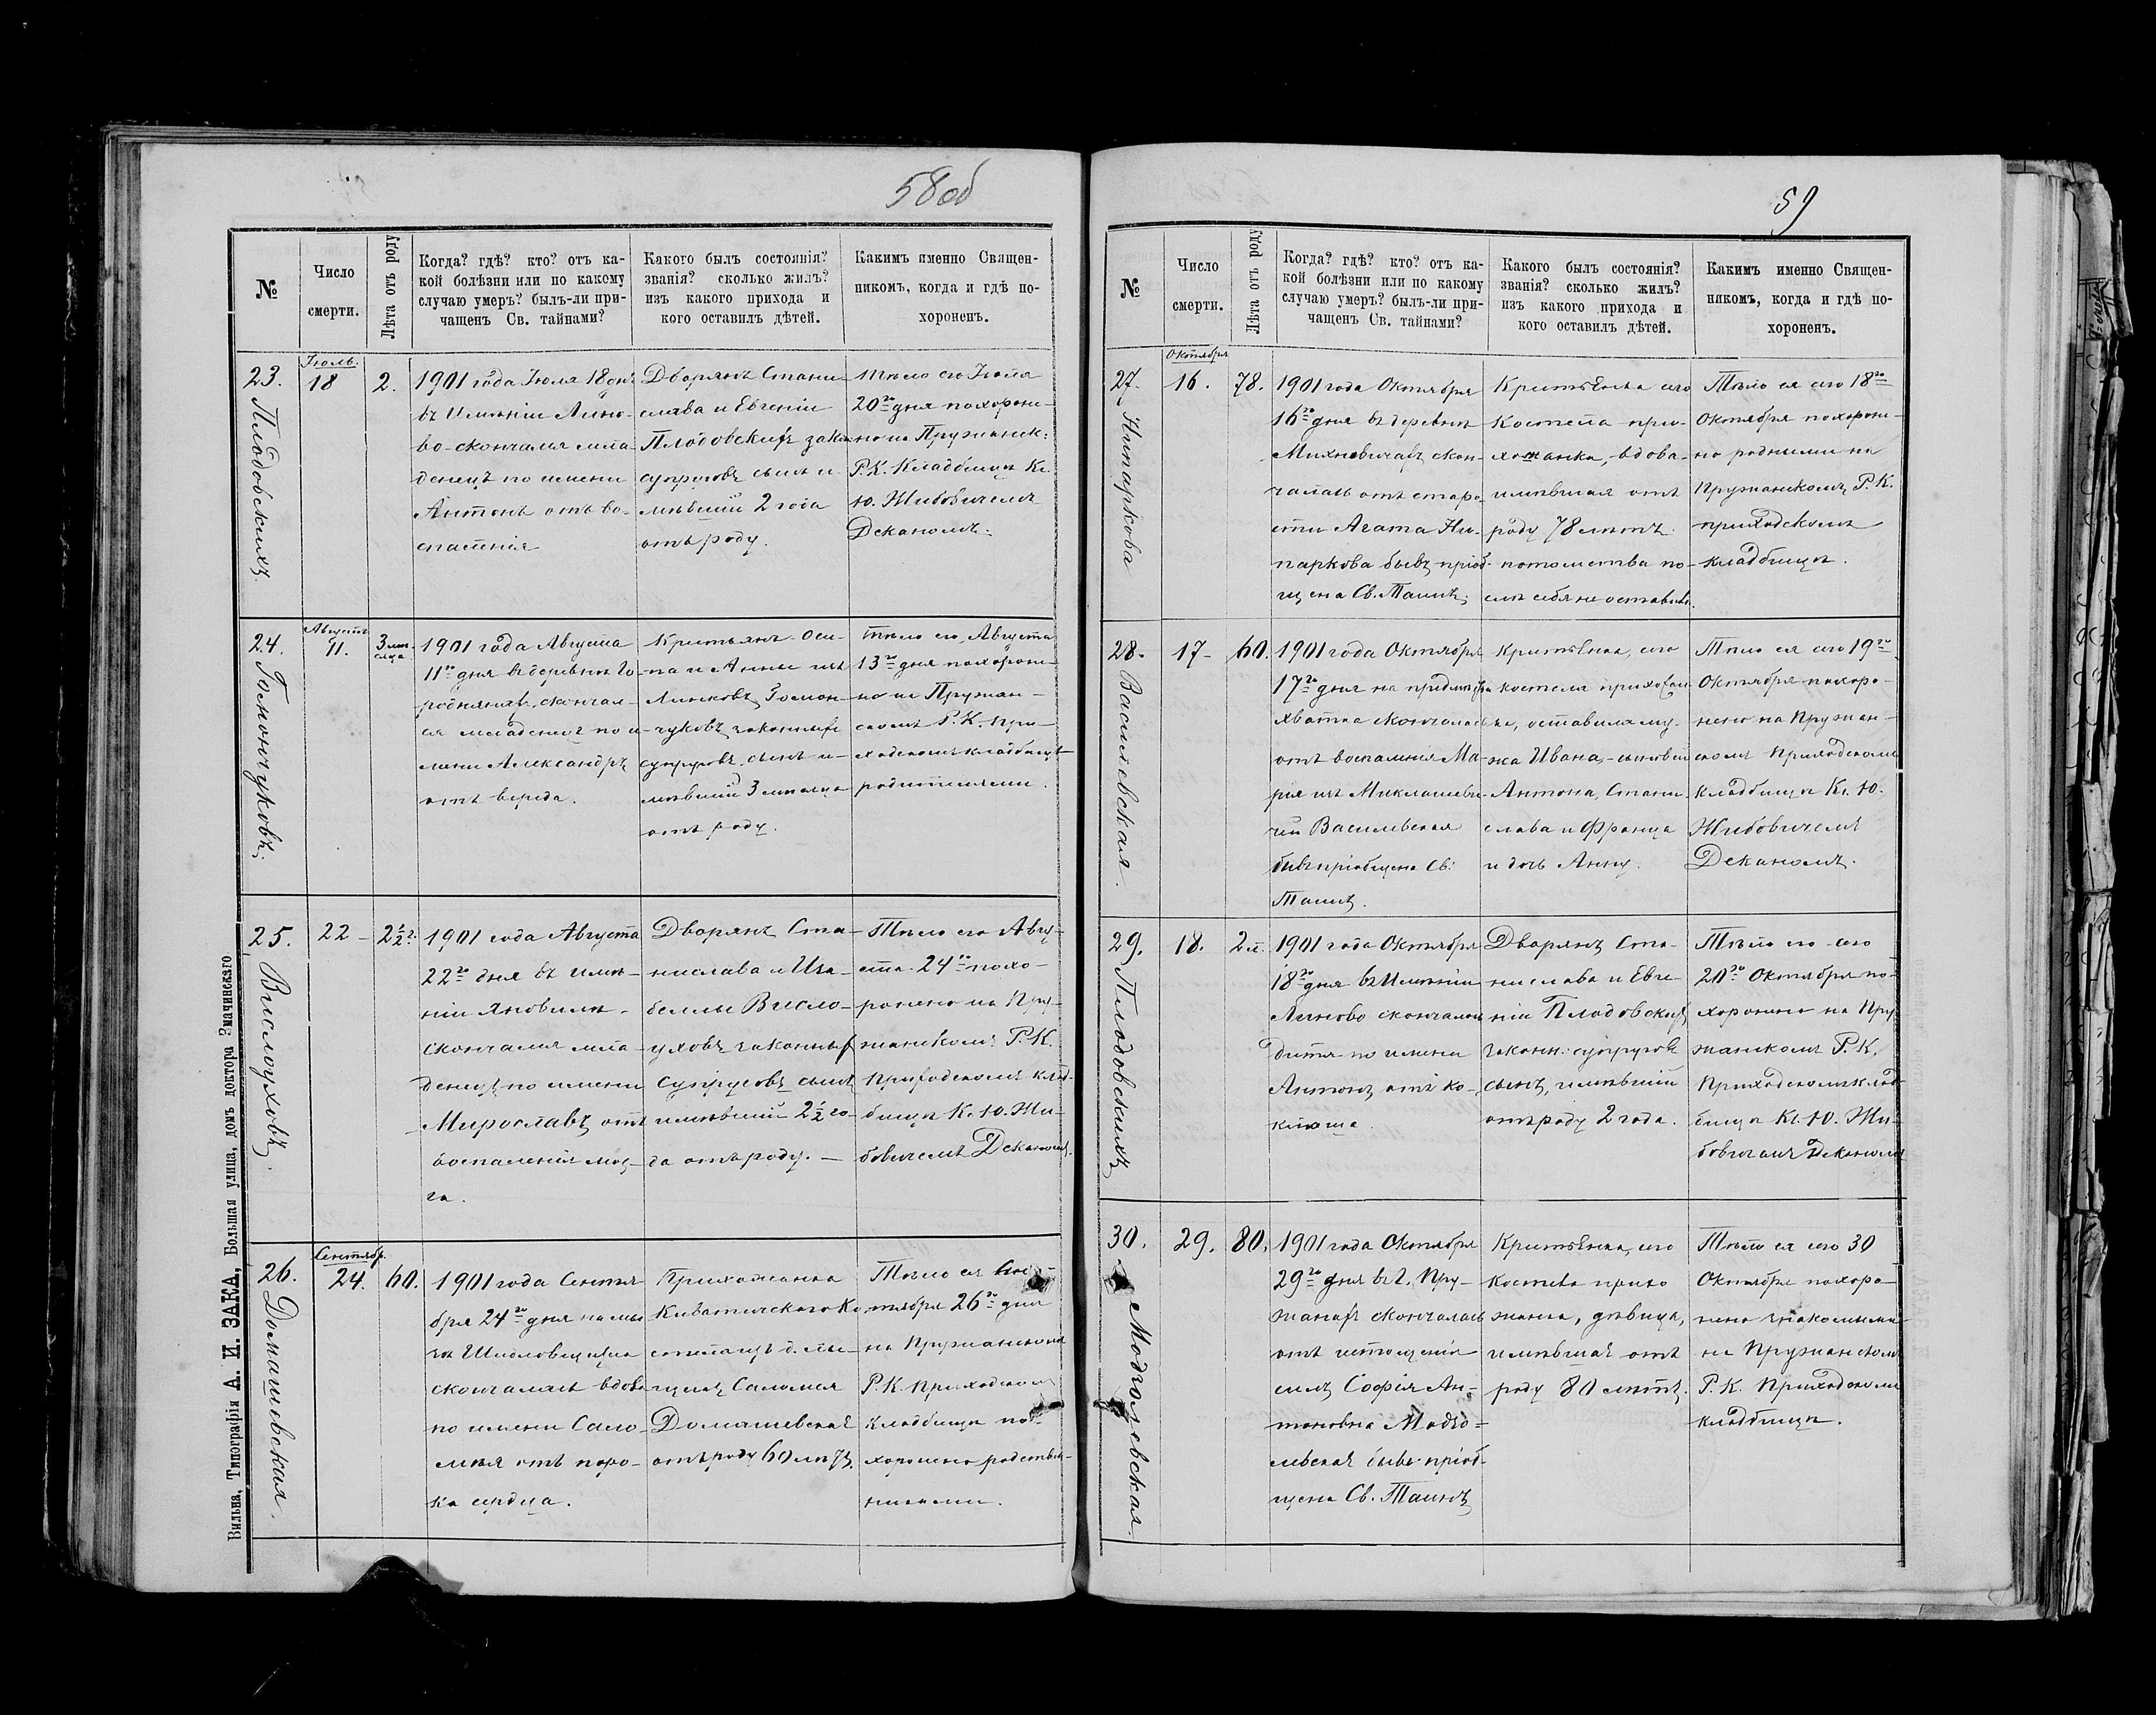 58об
№
Число
смерти.
Лѣта отъ роду
Когда? гдѣ? кто? отъ ка-
кой болѣзни или по какому
случаю умеръ? былъ-ли при-
чащенъ Св. тайнами?
Какого былъ состоянія?
званія? сколько жилъ?
изъ какого прихода и
кого оставилъ дѣтей.
Какимъ именно Священ-
никомъ, когда и гдѣ по-
хороненъ.
23.
Плодовскихъ
Іюль.
18
2.
1901 года Іюля 18 дня
въ Имѣніи Лино-
во-скончался мла-
денецъ по имени
Антонъ отъ во-
спаленія
Дворянъ Стани-
слава и Евгеніи
Плодовскихъ закон:
супруговъ сынъ и-
мѣвшій 2 года
отъ роду.
Тѣло его Іюля
20го дня похороне-
но на Пружанск:
Р.К. Кладбищѣ Кс.
Ю. Жибовичемъ
Деканомъ.
24.
Гомончуковъ.
Августъ
11.
3 мѣ-
сяца
1901 года Августа
11го дня въ деревнѣ Го-
роднянахъ скончал-
ся младенецъ по и-
мени Александръ
отъ вереда.
Крестьянъ Оси-
па и Анны изъ
Линковъ Гомон-
чуковъ законныхъ
супруговъ сынъ и-
мѣвшій 3 мѣсяца
отъ роду.
Тѣло его Августа
13го дня похороне-
но на Пружан-
скомъ Р.К. При-
ходскомъ кладбищѣ
родителями.
25.
Вислоуховъ.
22
2½ г.
1901 года Августа
22го дня въ имѣ-
ніи Яновили-
скончался мла-
денецъ по имени
Мирославъ отъ
воспаленія моз-
га.
Дворянъ Ста-
нислава и Иза-
беллы Висло-
уховъ законныхъ
Супруговъ сынъ
имѣвшій 2½ го-
да отъ роду.
Тѣло его Авгу-
ста 24го похо-
ронено на Пру-
жанскомъ Р.К.
Приходскомъ клад-
бищѣ Кс. Ю. Жи-
бовичемъ Деканомъ.
26.
Домашевская.
Сентябр.
24.
60.
1901 года Сентя-
бря 24го дня
скончалась вдова
по имени Сало-
мея отъ поро-
ка сердца.
Прихожанка
Киватическаго Ко-
Саломея
Домашевская
отъ роду 60 лѣтъ.
Тѣло ея Сен-
тября 26го дня
на Пружанскомъ
Р.К. Приходскомъ
Кладбищѣ по-
хоронено родствен-
никами.
Вильна, Типографія А. И. ЗАКА, Большая улица, домъ доктора Змачинскаго
59
№
Число
смерти.
Лѣта отъ роду
Когда? гдѣ? кто? отъ ка-
кой болѣзни или по какому
случаю умеръ? былъ-ли при-
чащенъ Св. тайнами?
Какого былъ состоянія?
званія? сколько жилъ?
изъ какого прихода и
кого оставилъ дѣтей.
Какимъ именно Священ-
никомъ, когда и гдѣ по-
хороненъ.
27.
Нипаркова
Октября
16.
78.
1901 года Октября
16го дня въ деревнѣ
Михневичахъ скон-
чалась отъ старо-
сти Агата Ни-
паркова бывъ пріоб-
щена Св. Таинъ.
Крестьянка сего
Костела при-
хожанка, вдова-
имѣвшая отъ
роду 78 лѣтъ.
потомства по-
слѣ себя не оставила.
Тѣло ея сего 18го
Октября похороне-
но родными на
Пружанскомъ Р.К.
приходскомъ
кладбищѣ.
28.
Василевская.
17
60.
1901 года Октября
17го дня на предмѣстьи
хватка скончалась
отъ воспаленія Ма-
рія изъ Миклашеви-
чей Василевская
бывъ пріобщена Св.
Таинъ.
Крестьянка, сего
костела прихожан-
ка, оставила му-
жа Ивана, сыновей
Антона, Стани-
слава и Франца
и дочь Анну.
Тѣло ея сего 19го
Октября похоро-
нено на Пружан-
скомъ Приходскомъ
Кладбищѣ Кс. Ю.
Жибовичемъ
Деканомъ.
29.
Плодовскихъ
18.
2 л.
1901 года Октября
18го дня въ Имѣніи
Линово скончалось
дитя по имени
Антонъ отъ ко-
клюша.
Дворянъ Ста-
нислава и Евге-
ніи Плодовскихъ
законн: супруговъ
сынъ, имѣвшій
отъ роду 2 года.
Тѣло его сего
20го Октября по-
хоронено на Пру-
жанскомъ Р.К.
Приходскомъ клад-
бищѣ Кс. Ю. Жи-
бовичемъ Деканомъ
30.
Модзолевская.
29.
80.
1901 года Октября
29го дня въ г. Пру-
жанахъ скончалась
отъ истощенія
силъ Софія Ан-
тоновна Модзо-
левская бывъ пріоб-
щена Св. Таинъ
Крестьянка, сего
Костела прихо
жанка, дѣвица,
имѣвшая отъ
роду 80 лѣтъ.
Тѣло ея сего 30
Октября похоро-
нено знакомыми
на Пружанскомъ
Р.К. Приходскомъ
кладбищѣ.